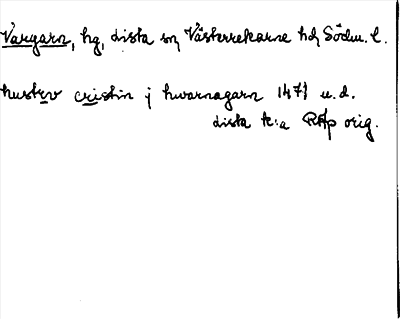 Vargarn, hg, dista sn, Västerrekarne hd, Södm. l.
hustrv cristin j hwarnagarn 1471 u.d.
dista k:a RAp orig.